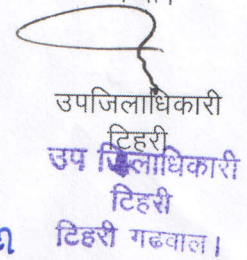 उपजिलाधिकारी
टिहरी
उप जिलाधिकारी
टिहरी
टिहरी गढवाल।